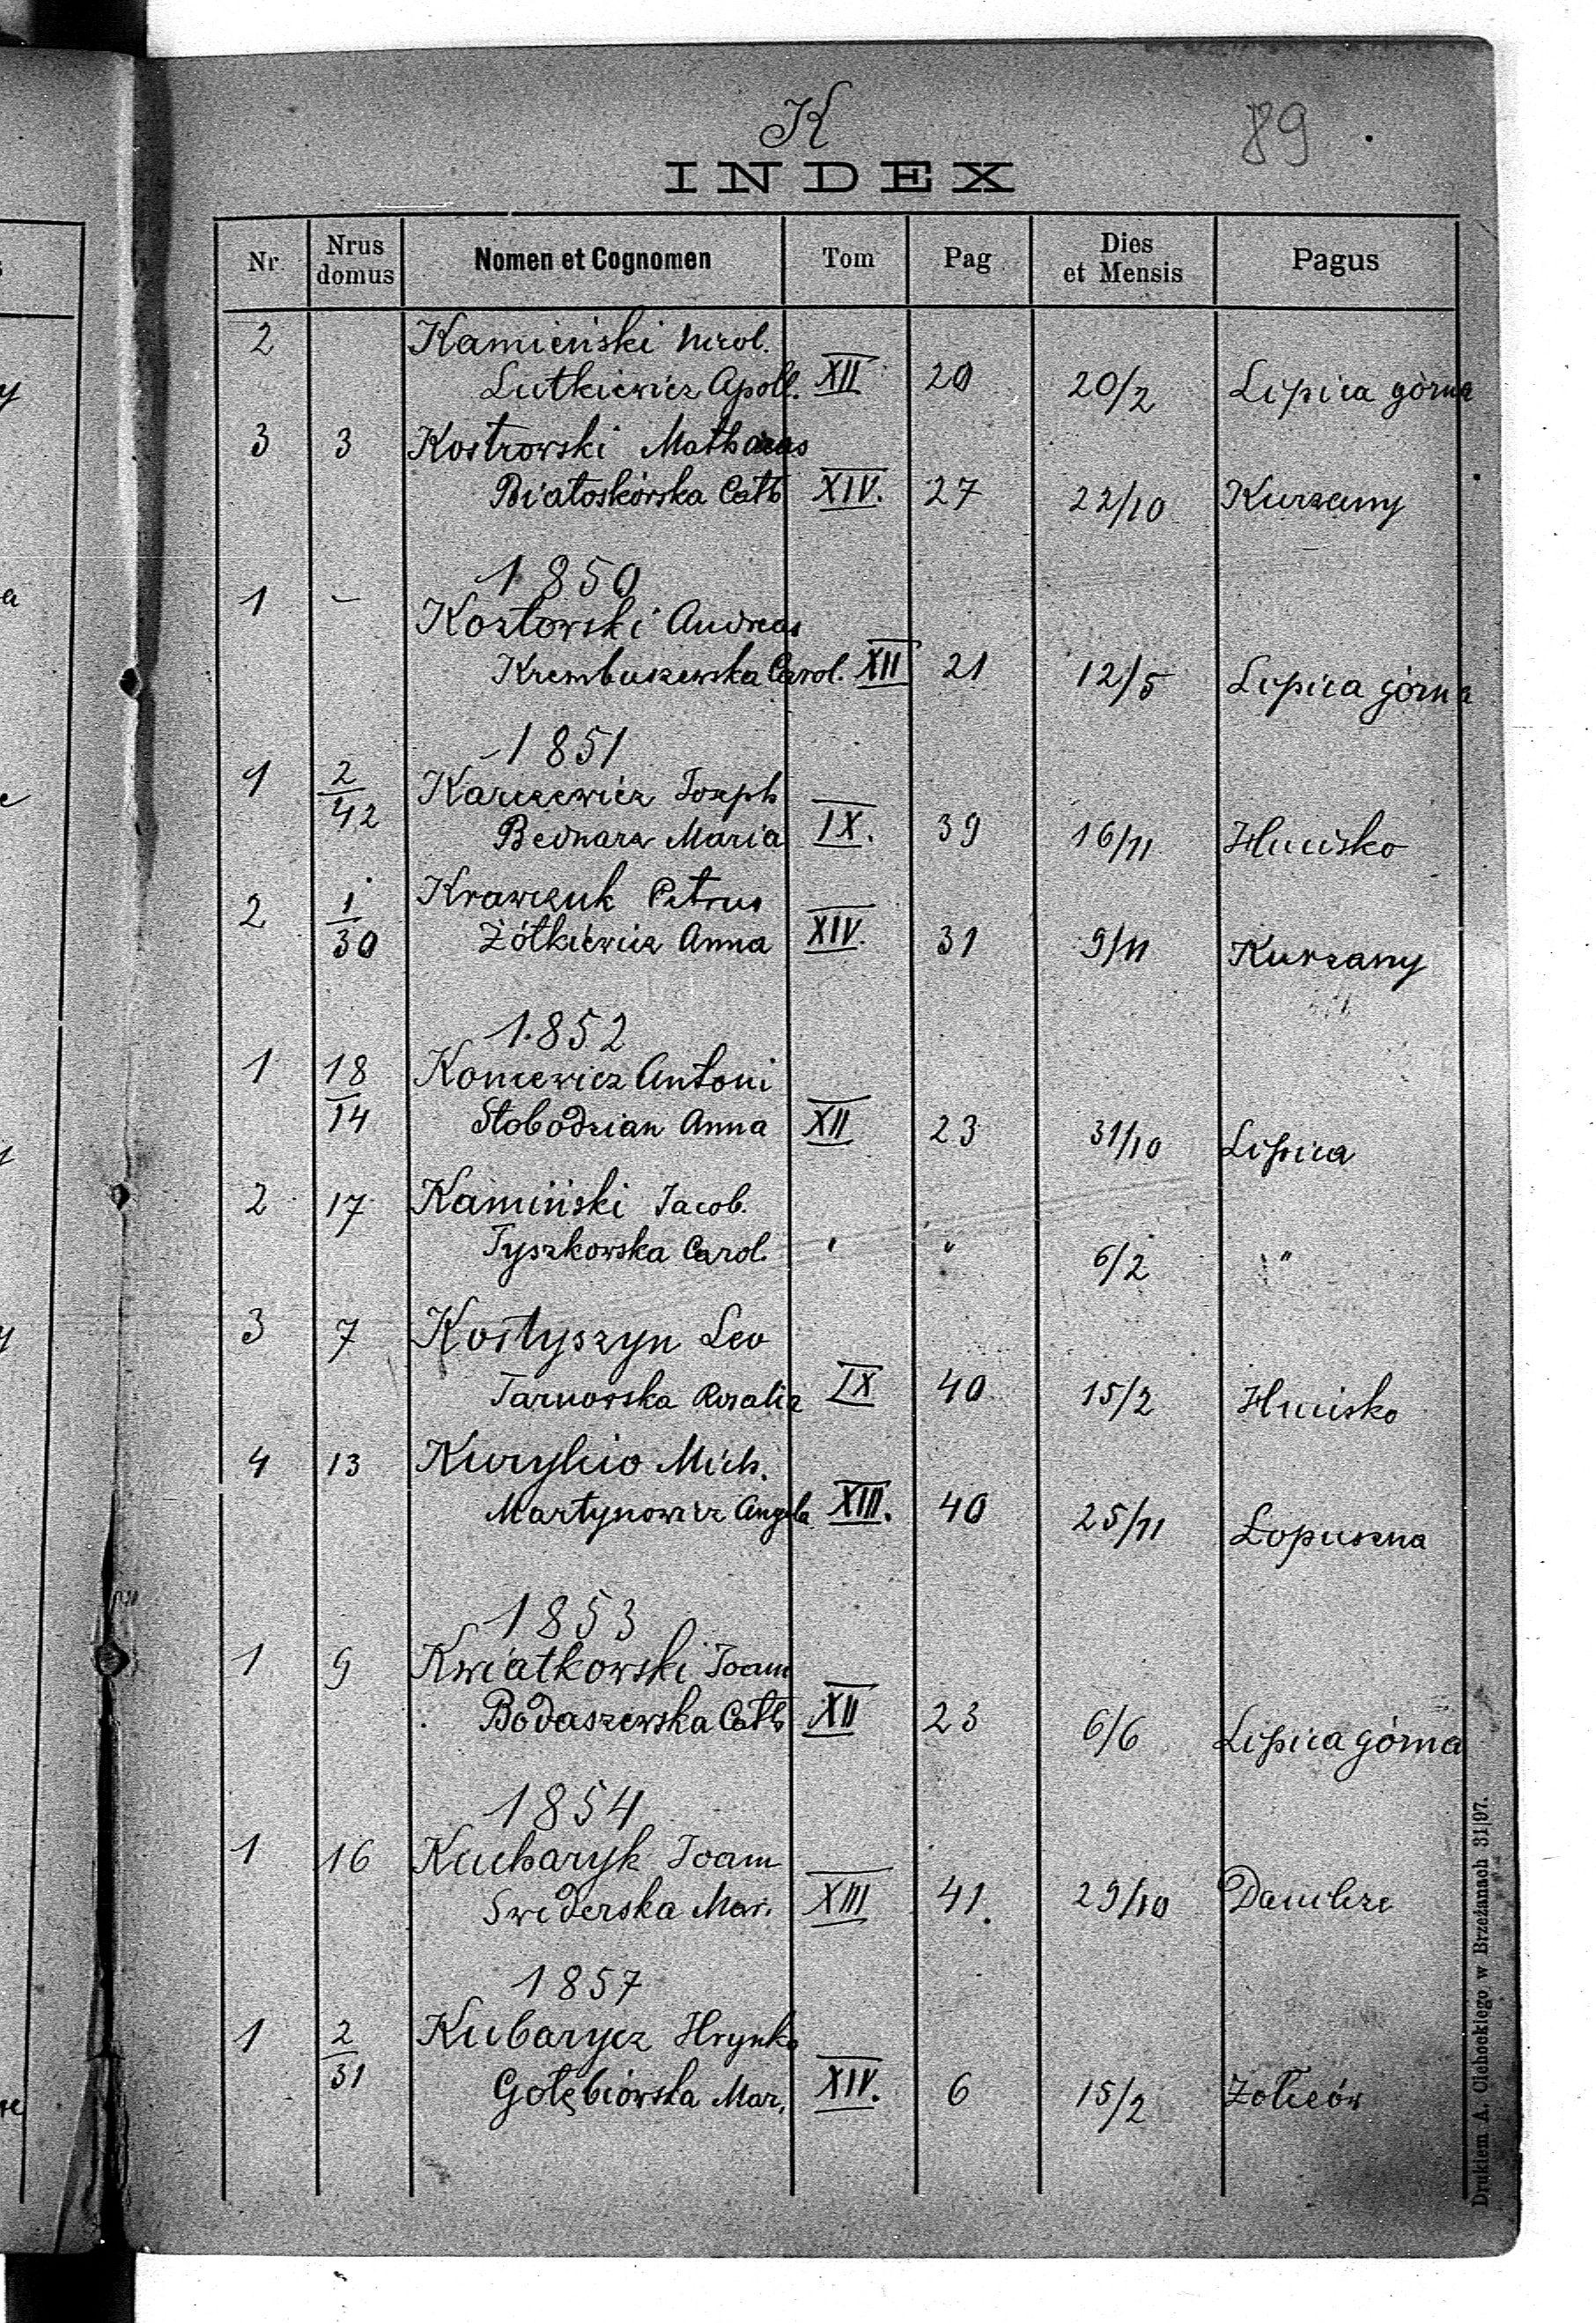 K
89
INDEX
Nr Nrus domus Nomen et Cognomen Tom Pag Dies et Mensis Pagus
2 Kamieński Nicol.
Lutkiewicz Apoll. XII 20 20/2 Lipica górna
3 3 Kostrowski Mathaeus
Białoskórska Cath XIV. 27 22/10 Kurzany
1850
1 – Kozłowski Andreas
Krembuszewska Carol. XII 21 12/5 Lipica górna
1851
1 2/42 Karczewicz Joseph
Bednarz Maria IX. 39 16/11 Hucisko
2 1/30 Krawczuk Petrus
Żółkiewicz Anna XIV. 31 9/11 Kurzany
1852
1 18/14 Koncewicz Antoni
Słobodzian Anna XII 23 31/10 Lipica
2 17 Kamiński Jacob.
Tyszkowska Carol. " " 6/2 "
3 7 Kostyszyn Leo
Tarnowska Rosalia IX 40 15/2 Hucisko
4 13 Kuryłcio Mich.
Martynowicz Angela XIII. 40 25/11 Łopuszna
1853
1 9 Kwiatkowski Joann
Bodaszewska Cath XII 23 6/6 Lipica górna
1854
1 16 Kucharyk Joann
Swiderska Mar. XIII 41. 29/10 Danilcze
1857
1 2/31 Kubarycz Hrynko
Gołębiówska Mar. XIV. 6 15/2 Żołczów
Drukiem A. Cichockiego w Brzeżanach 31|97.